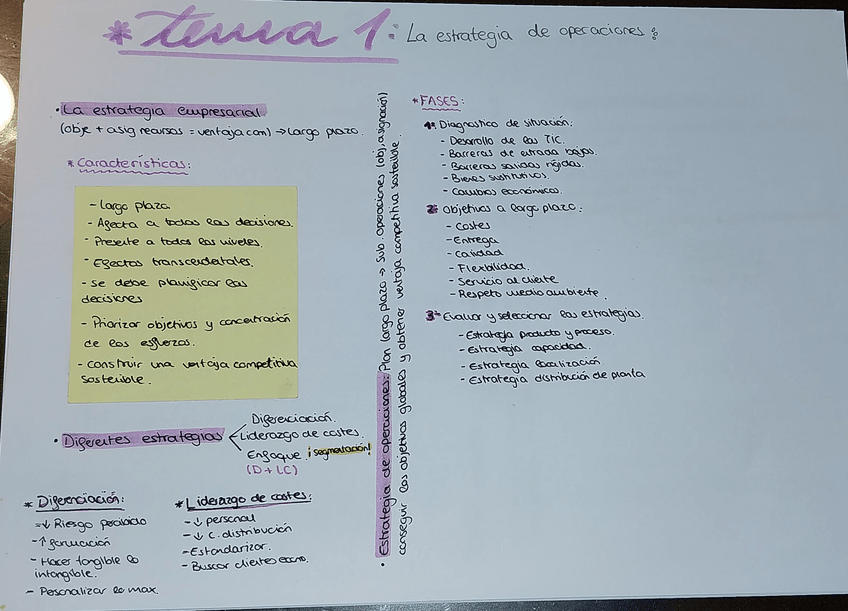 *tema 1: La estrategia de operaciones:
· La estrategia empresarial
(obje + asig recursos = ventaja com) → Largo plazo.
* Características:
- Largo plazo
- Afecta a todas las decisiones.
- Presente a todos los niveles.
- Efectos transcendentales.
- se debe planificar las
decisiones
- Priorizar objetivos y concentración
de los esfuerzos.
- construir una ventaja competitiva
sostenible.
· Diferentes estrategias
Diferenciación.
Liderazgo de costes.
Enfoque ¡segmentación!
(D + LC)
* Diferenciación:
- ↓ Riesgo
- ↑ formación
- Hacer tangible lo
intangible.
- Personalizar lo max.
* Liderazgo de costes:
- ↓ personal
- ↓ C. distribución
- Estandarizar.
- Buscar clientes econo.
· Estrategia de operaciones: Plan largo plazo → Sub operaciones (obj, asignación)
conseguir los objetivos globales y obtener ventaja competitiva sostenible.
* FASES:
1ª Diagnostico de situación:
- Desarrollo de las TIC.
- Barreras de entrada bajas.
- Barreras salidas rígidas.
- Bienes sustitutivos.
- Cambios económicos.
2ª Objetivos a largo plazo:
- Costes
- Entrega
- Calidad
- Flexibilidad.
- Servicio al cliente
- Respeto medio ambiente.
3ª Evaluar y seleccionar las estrategias.
- Estrategia producto y proceso.
- Estrategia capacidad.
- Estrategia localización
- Estrategia distribución de planta